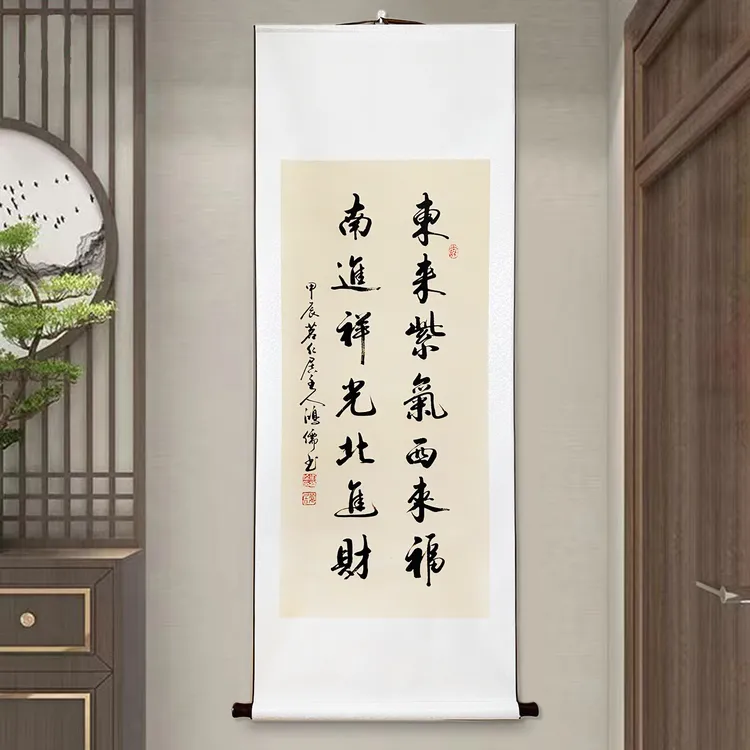 東来紫氣西来福
南進祥光北進財
甲辰茗仁居主人鴻儒书